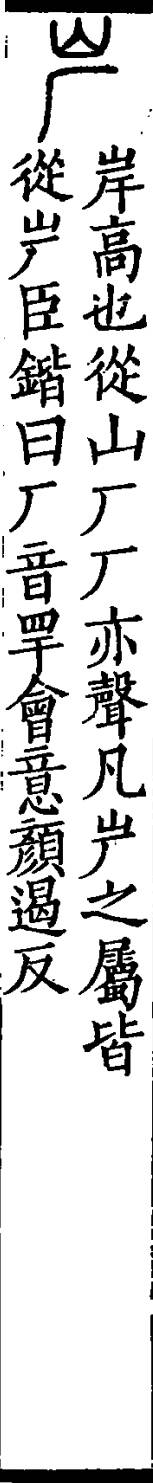 屵
岸高也從山厂厂亦聲凡屵之屬皆
從屵臣鍇曰厂音罕會意顏遏反